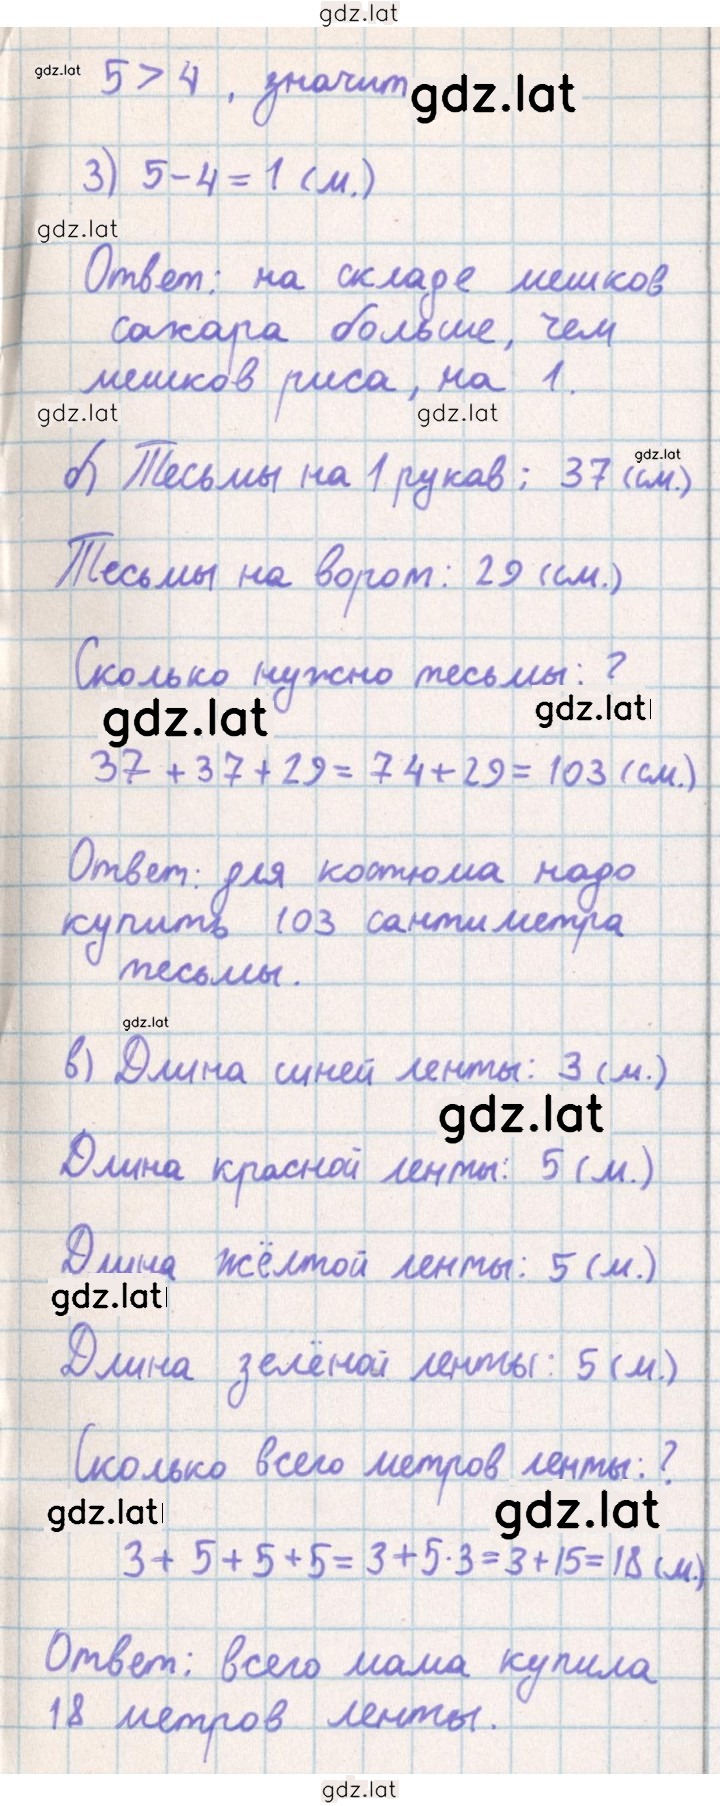 gdz.lat
gdz.lat 5 > 4 , значит gdz.lat
3) 5 - 4 = 1 (м.)
gdz.lat
Ответ: на складе мешков
сахара больше, чем
мешков риса, на 1.
gdz.lat gdz.lat
gdz.lat
б) Тесьмы на 1 рукав: 37 (см.)
Тесьмы на ворот: 29 (см.)
Сколько нужно тесьмы: ?
gdz.lat gdz.lat
37 + 37 + 29 = 74 + 29 = 103 (см.)
Ответ: для костюма надо
купить 103 сантиметра
тесьмы.
gdz.lat
в) Длина синей ленты: 3 (м.)
gdz.lat
Длина красной ленты: 5 (м.)
Длина жёлтой ленты: 5 (м.)
gdz.lat
Длина зелёной ленты: 5 (м.)
Сколько всего метров ленты: ?
gdz.lat gdz.lat
3 + 5 + 5 + 5 = 3 + 5 · 3 = 3 + 15 = 18 (м.)
Ответ: всего мама купила
18 метров ленты.
gdz.lat